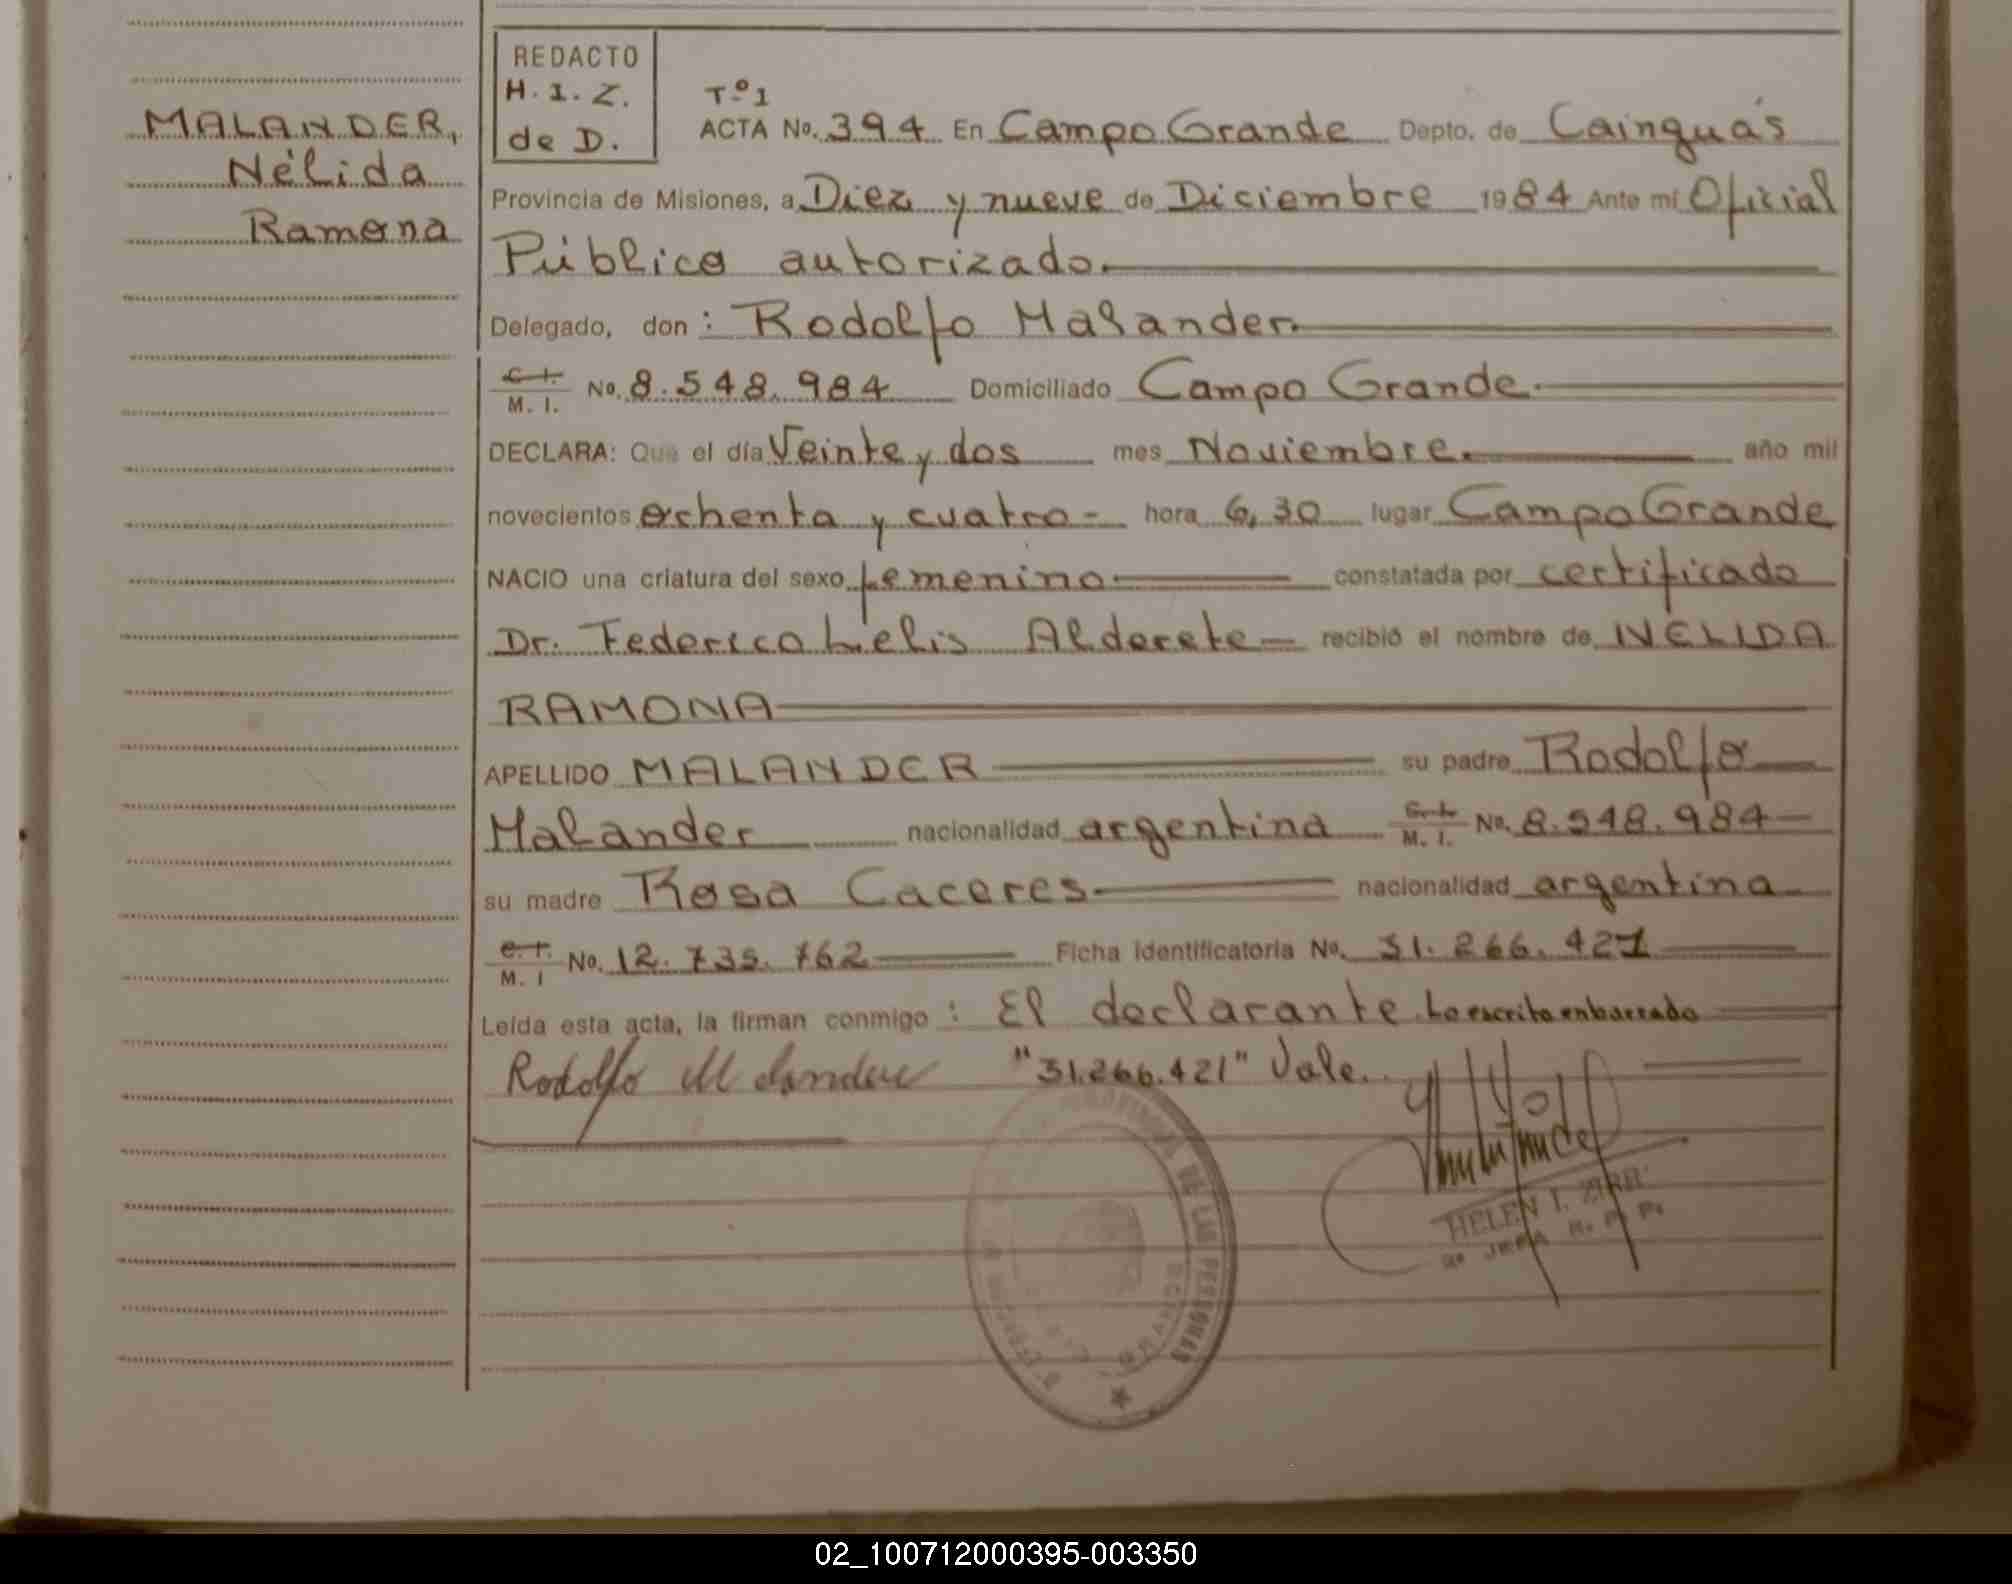 MALANDER,
Nélida
Ramona
REDACTO
H. I. Z.
de D.
Tº1
ACTA No. 394 En Campo Grande Depto. de Cainguás
Provincia de Misiones, a Diez y nueve de Diciembre 1984 Ante mi Oficial
Público autorizado.
Delegado, don : Rodolfo Malander.
C. I.
M. I. No. 8.548.984 Domiciliado Campo Grande.
DECLARA: Que el día Veinte y dos mes Noviembre. año mil
novecientos ochenta y cuatro - hora 6,30 lugar Campo Grande
NACIO una criatura del sexo femenino constatada por certificado
Dr. Federico Lelis Alderete recibió el nombre de NELIDA
RAMONA
APELLIDO MALANDER su padre Rodolfo
Malander nacionalidad argentina C. I.
M. I. No. 8.548.984
su madre Rosa Caceres nacionalidad argentina
C. I.
M. I No. 12.735.762 Ficha identificatoria No. 31.266.421
Leída esta acta, la firman conmigo : El declarante. Lo escrito enbarrado
Rodolfo Malander "31.266.421" Vale.
DE LAS PERSONAS
HELEN I.
JEFA R. P. P.
02_100712000395-003350